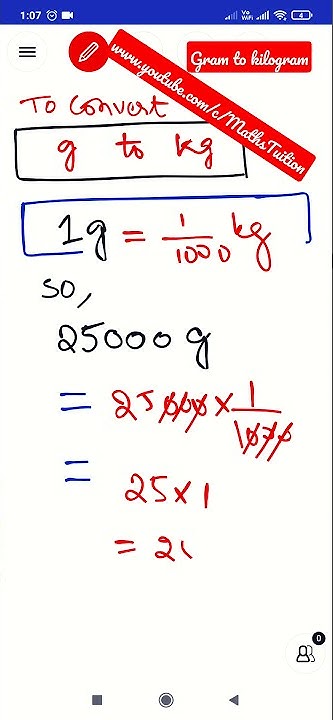 1:07
4
Gram to kilogram
www.youtube.com/c/MathsTuition
To Convert
g to kg
1g = 1/1000 kg
so,
25000 g
= 25000 × 1/1000
= 25 × 1
= 2
0